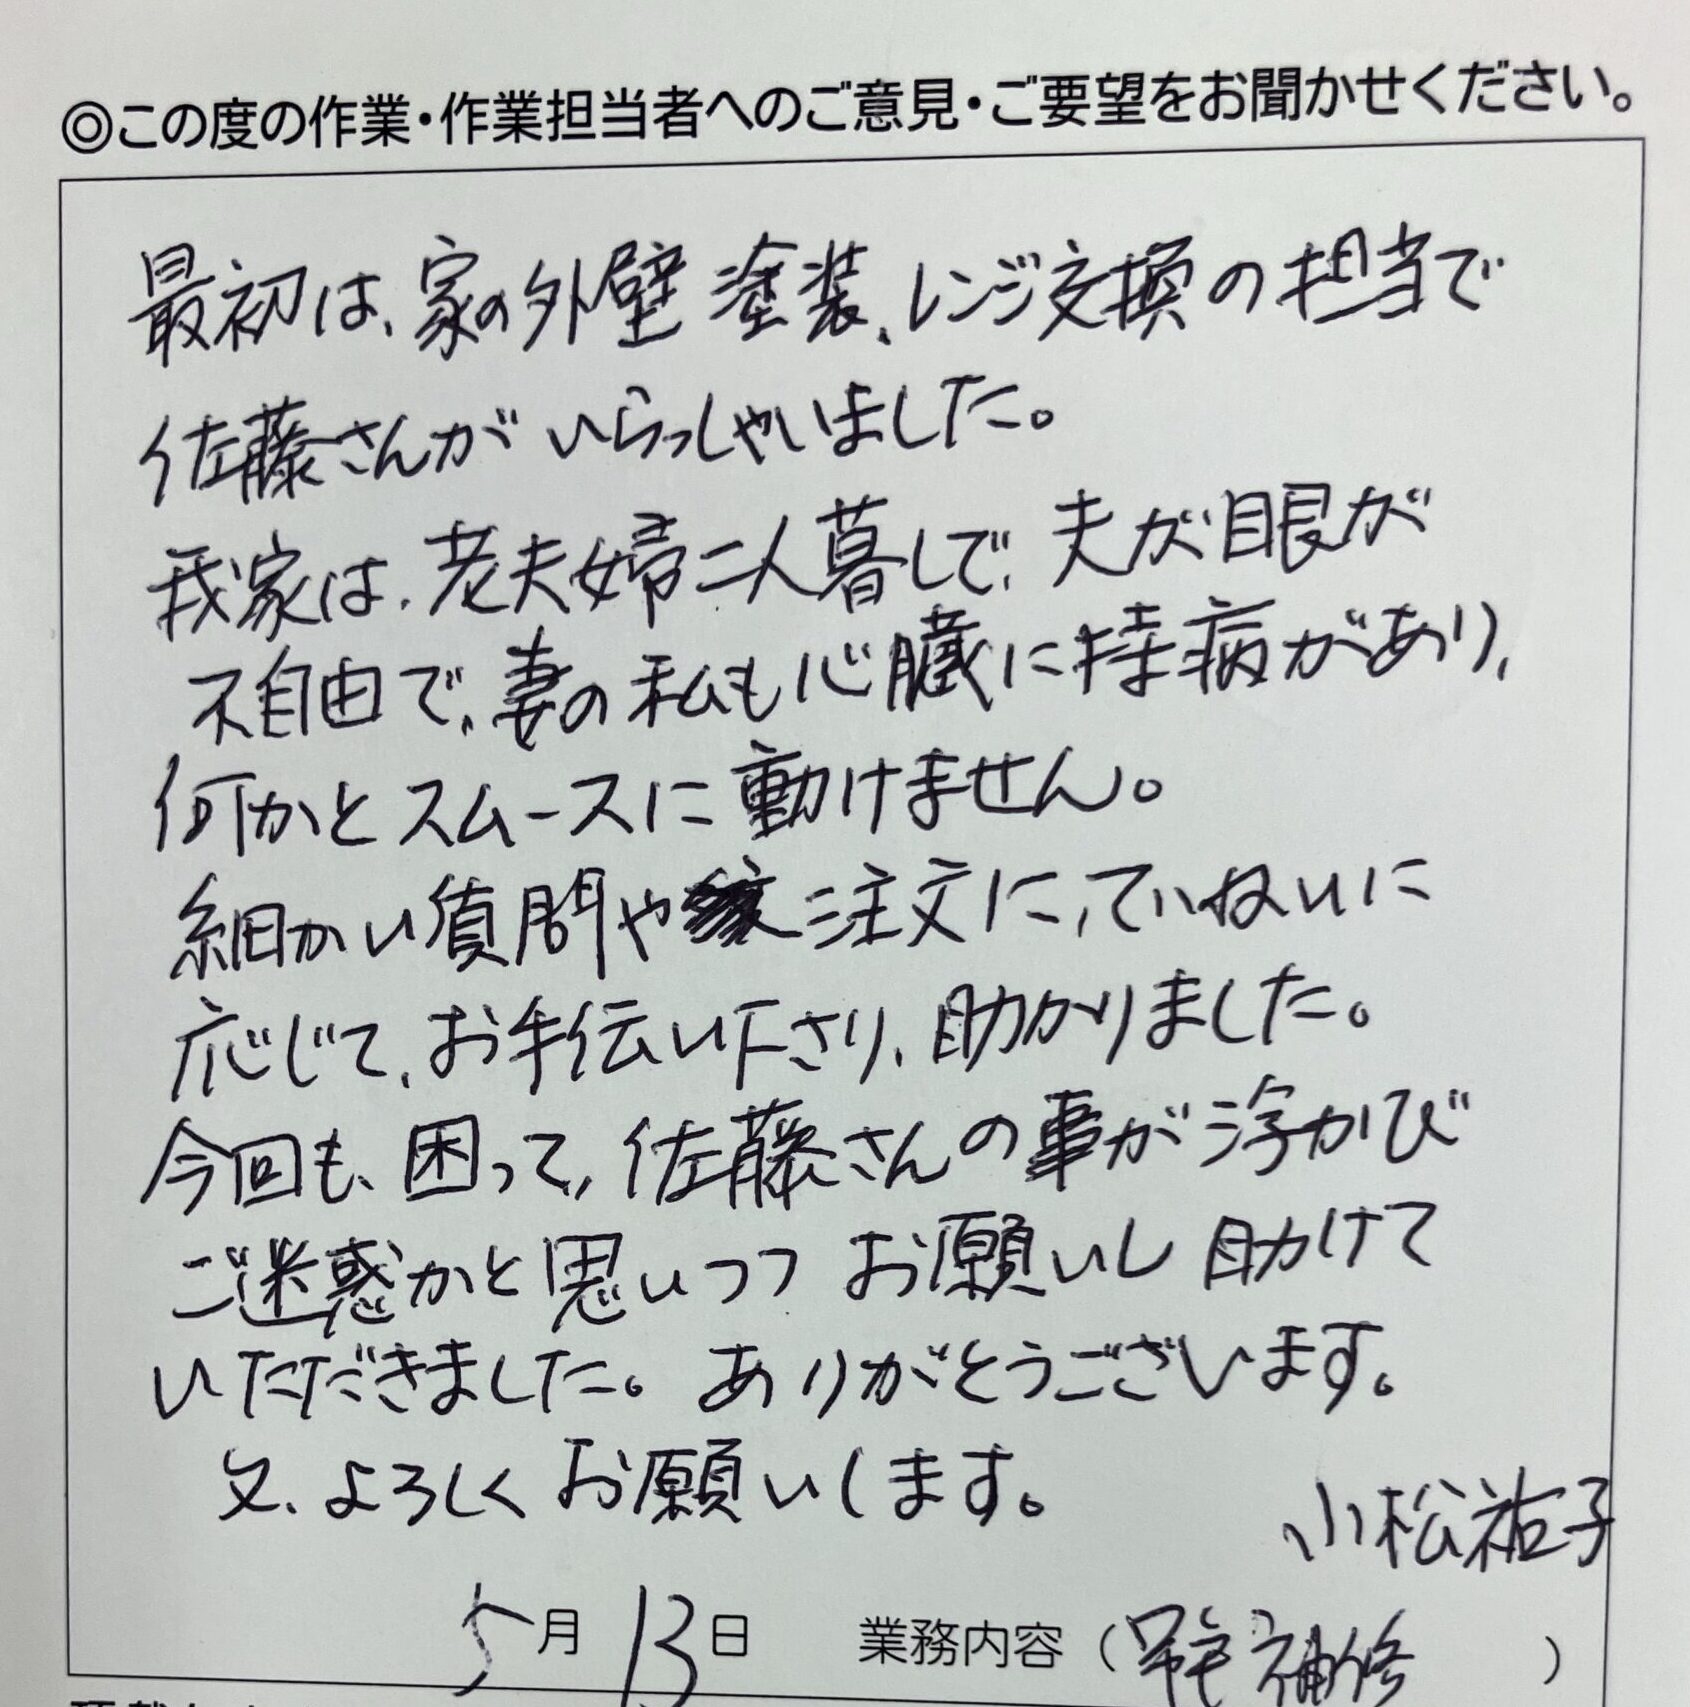 ◎この度の作業・作業担当者へのご意見・ご要望をお聞かせください。
最初は、家の外壁塗装、レンジ交換の担当で
佐藤さんがいらっしゃいました。
我家は、老夫婦二人暮しで、夫が眼が
不自由で、妻の私も心臓に持病があり、
何かとスムースに動けません。
細かい質問や注文に、ていねいに
応じて、お手伝い下さり、助かりました。
今回も、困って、佐藤さんの事が浮かび
ご迷惑かと思いつつお願いし助けて
いただきました。ありがとうございます。
又、よろしくお願いします。
小松祐子
5月13日 業務内容（補修）